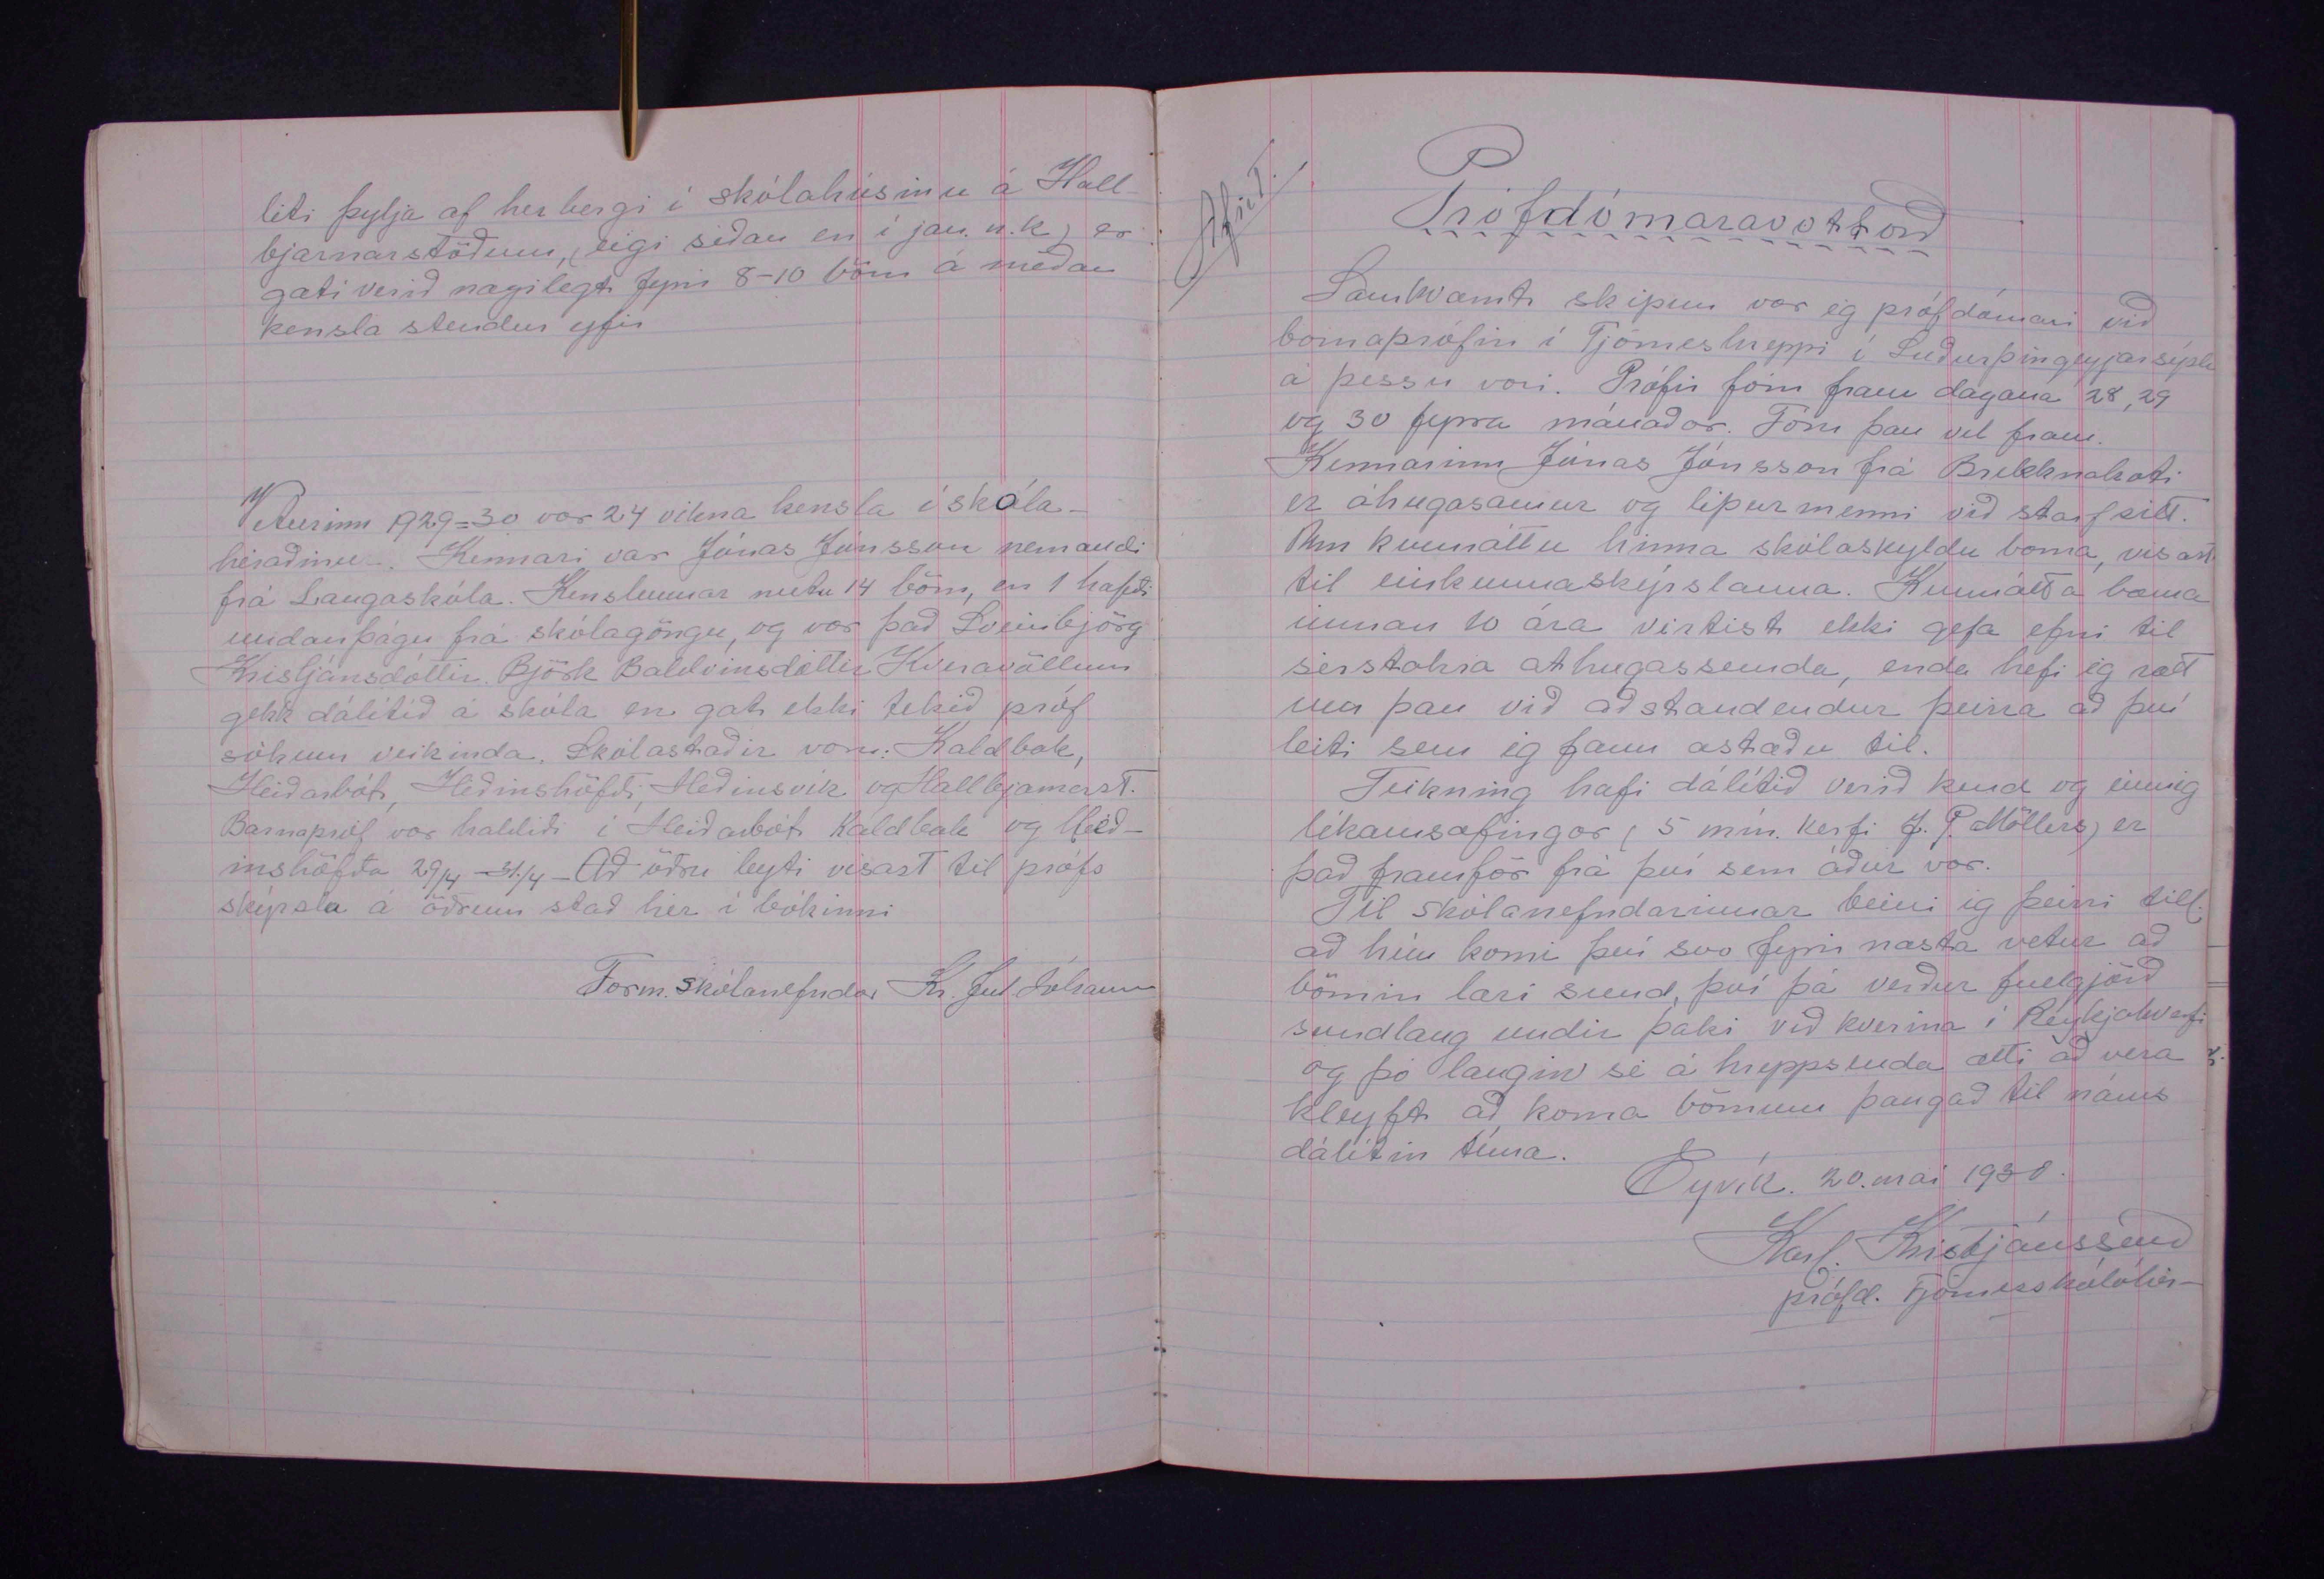 liti þylja af herbergi í skólahúsinu á Hall-
bjarnarstöðum, (eigi síðan en í jan. n.k.) er
gæti verið nægilegt fyrir 8-10 börn á meðan
kensla stendur yfir
Veturinn 1929=30 var 24 vikna kensla í skóla-
héraðinu. Kennari var Jónas Jónsson nemandi
frá Laugaskóla. Kenslunnar nutu 14 börn, en 1 hafði
undanþágu frá skólagöngu, og var það Sveinbjörg
Kristjánsdóttir. Björk Baldvinsdóttir Hveravöllum
gekk dálítið á skóla en gat ekki tekið próf
sökum veikinda. Skólastaðir voru: Kaldbak,
Heiðarbót, Héðinshöfði, Héðinsvík og Hallbjarnarst.
Barnapróf var haldið í Heiðarbót Kaldbak og Héð-
inshöfða 29/4 - 31./4 - Að öðru leyti vísast til prófs
skýrsla á öðrum stað hér í bókinni
Form. skólanefndar Kr. Júl Jóhanns
Afrit.
Prófdómaravottorð
Samkvæmt skipun var ég prófdómari við
barnaprófin í Tjörneshreppi í Suðurþingeyjarsýslu
á þessu vori. Prófin fóru fram dagana 28, 29
og 30 fyrra mánaðar. Fóru þau vel fram.
Kennarinn Jónas Jónsson frá Brekknakoti
er áhugasamur og lipurmenni við starf sitt.
Um kunnáttu hinna skólaskyldu barna, vísast
til einkunnaskýrslanna. Kunnátta barna
innan 10 ára virtist ekki gefa efni til
sérstakra athugasemda, enda hefi ég rætt
um þau við aðstandendur þeirra að því
leiti sem ég fann ástæðu til.
Teikning hafi dálítið verið kend og einnig
líkamsæfingar (5 mín. kerfi J. P. Möllers) er
það framför frá því sem áður var.
Til skólanefndarinnar beini ég þeirri till.
að hún komi því svo fyrir næsta vetur að
börnin læri sund, því þá verður fuelgjörð
sundlaug undir þaki við hverina í Reykjahverfi
og þó laugin sé á hreppsenda ætti að vera
kleyft að koma börnum þangað til náms
dálítin tíma.
Eyvík. 20. maí 1930.
Karl. Kristjánsson
prófd. Tjörnesskólahér-